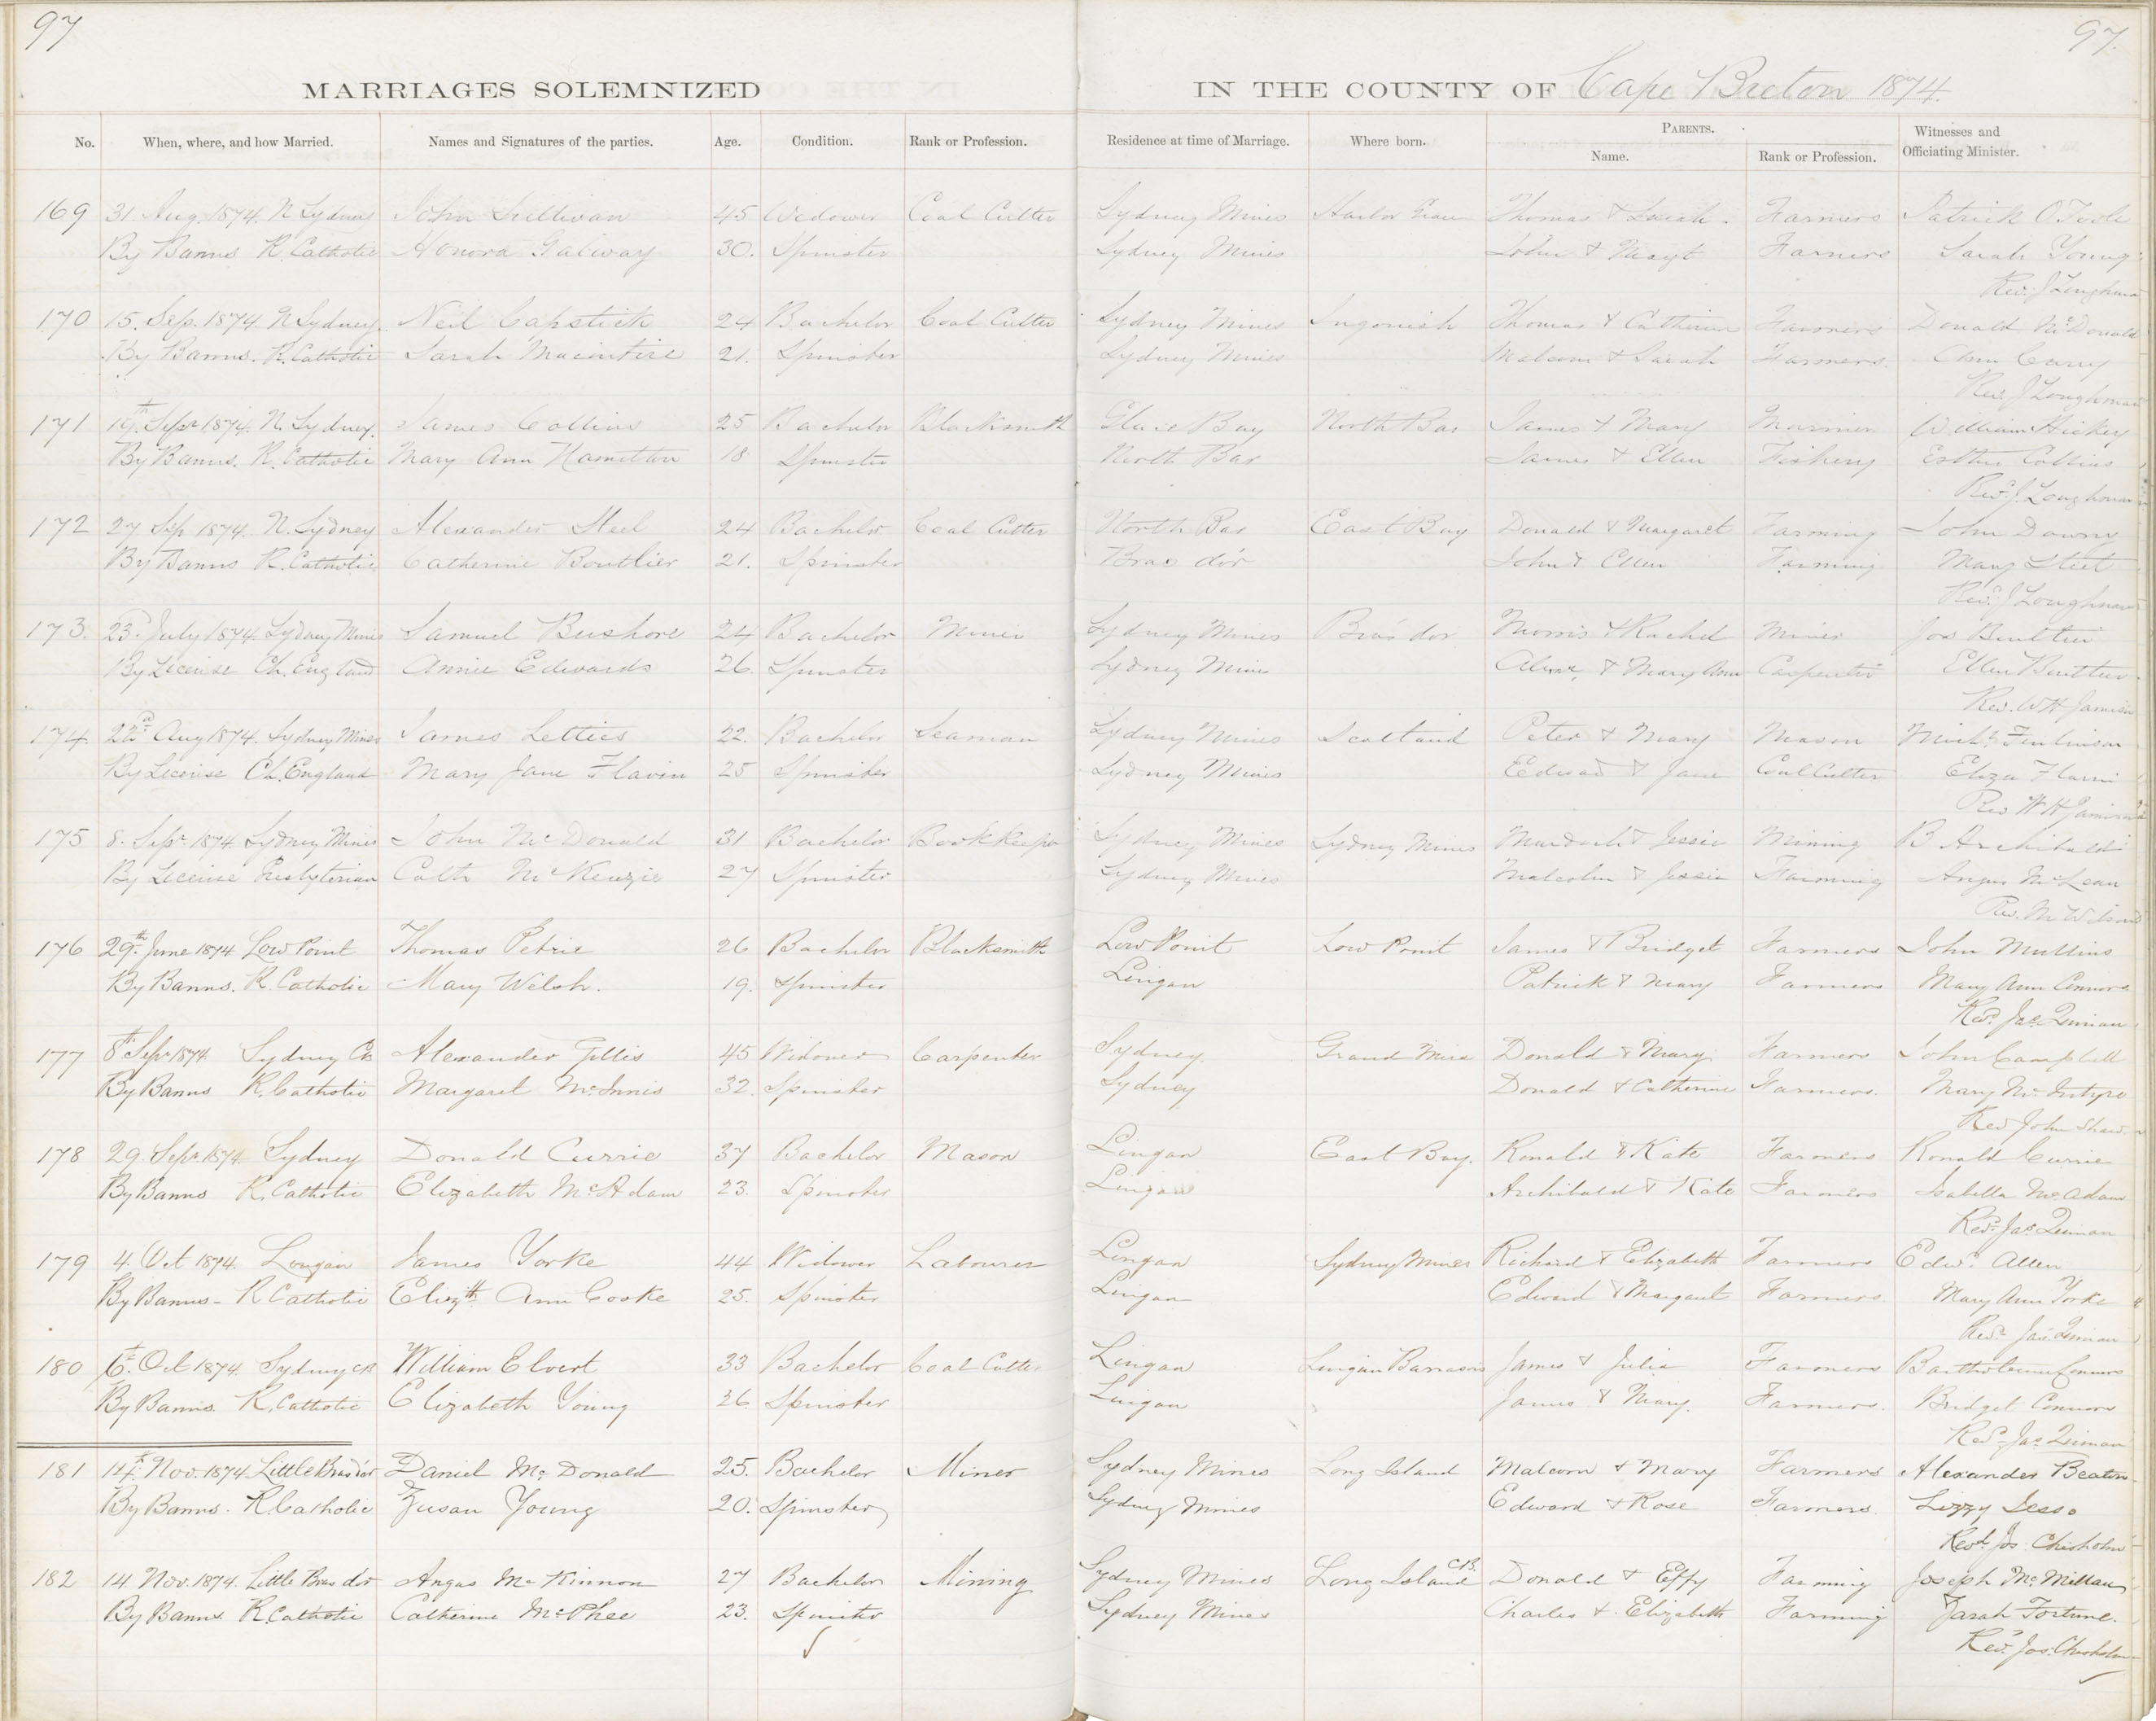 97
97.
MARRIAGES SOLEMNIZED IN THE COUNTY OF Cape Breton 1874.
No. When, where, and how Married. Names and Signatures of the parties. Age. Condition. Rank or Profession. Residence at time of Marriage. Where born. PARENTS. Name. Rank or Profession. Witnesses and Officiating Minister.
169 31 Aug. 1874. N Sydney John Sullivan 45 Widower Coal Cutter Sydney Mines Harbor Grace Thomas & Sarah. Farmers Patrick O'Toole
By Banns R. Catholic Honora Galway 30. Spinster Sydney Mines John & Margt Farmers Sarah Young
Rev. J Loughnan
170 15. Sep. 1874 N Sydney. Neil Capstick 24 Bachelor Coal Cutter Sydney Mines Ingonish Thomas & Catherine Farmers Donald McDonald
By Banns. R. Catholic Sarah Macintire 21. Spinster Sydney Mines Malcom & Sarah Farmers. Ann Curry
Rev. J Loughnan
171 19th Sepr 1874. N. Sydney. James Collins 25 Bachelor Blacksmith Glace Bay North Bar James & Mary Mariner William Hickey
By Banns. R. Catholic Mary Ann Hamilton 18 Spinster North Bar James & Ellen Fishery Esther Collins
Revd. J. Loughnan
172 27 Sep 1874. N. Sydney Alexander Steel 24 Bachelor Coal Cutter North Bar East Bay Donald & Margaret Farming John Downy
By Banns R. Catholic Catherine Boutlier 21. Spinster Bras d'or John & Ellen Farming Mary Steel
Revd. J Loughnan
173. 23d July 1874. Sydney Mines Samuel Bushore 24 Bachelor Miner Sydney Mines Bras dor Morris & Rachel Miner Jos Boutlier
By License Ch. England Annie Edwards 26. Spinster Sydney Mines Alexr. & Mary Ann Carpenter Ellen Boutlier
Rev. W H Jamison
174. 22d Aug 1874. Sydney Mines James Lettics 22. Bachelor Seaman Sydney Mines Scotland Peter & Mary Mason Michl. Tomlinson
By License Ch. England Mary Jane Flavin 25 Spinster Sydney Mines Edward & Jane Coal Cutter Eliza Flavin
Rev W H Jamison
175 8. Sepr. 1874 Sydney Mines John McDonald 31 Bachelor Book Keeper Sydney Mines Sydney Mines Murdoch & Jessie Mining B Archibald
By License Presbyterian Cath McKenzie 27 Spinster Sydney Mines Malcolm & Jessie Farming Angus McLean
Rev. M Wilson
176 29th June 1874 Low Point Thomas Petrie 26 Bachelor Blacksmith Low Point Low Point James & Bridget Farmers John Mullins
By Banns. R. Catholic Mary Welsh. 19. Spinster Lingan Patrick & Mary Farmers Mary Ann Connors
Revd. Jas. Quinan
177 8th Sepr 1874 Sydney Ch Alexander Gillis 45 Widower Carpenter Sydney. Grand Mira Donald & Mary Farmers John Campbell
By Banns R. Catholic Margaret McInnis 32. Spinster Sydney Donald & Catherine Farmers. Mary McIntyre
Rev John Shaw
178 29. Sepr. 1874 Sydney Donald Currie 37 Bachelor Mason Lingan East Bay. Ronald & Kate Farmers Ronald Currie
By Banns R. Catholic Elizabeth McAdam 23. Spinster Lingan Archibald & Kate Farmers Isabella McAdam
Revd. Jas Quinan
179 4. Oct 1874. Longan James Yorke 44 Widower Labourer Lingan Sydney Mines Richard & Elizabeth Farmers Edwd. Allen
By Banns - R Catholic Elizth Ann Cooke 25. Spinster Lingan Edward & Margaret Farmers Mary Ann Yorke
Revd. Jas. Quinan
180 6th Oct 1874 Sydney CB William Elvert 33 Bachelor Coal Cutter Lingan Lingan Barrasois James & Julia Farmers Bartholemew Connors
By Banns. R. Catholic Elizabeth Young 26. Spinster Lingan James & Mary. Farmers. Bridget Connors
Revd. Jas. Quinan
181 14th Nov. 1874 Little Bras d'or Daniel McDonald 25. Bachelor Miner Sydney Mines Long Island Malcom & Mary Farmers Alexander Beaton
By Banns. R. Catholic Susan Young 20. Spinster Sydney Mines Edward & Rose Farmers. Lizzy Jesso
Revd. Jos. Chisholm
182 14 Nov. 1874. Little Bras dor Angus McKinnon 27 Bachelor Mining Sydney Mines Long Island C.B. Donald & Effy Farming Joseph McMillan
By Banns R. Catholic Catherine McPhee 23. Spinster Sydney Mines Charles & Elizabeth Farming Sarah Fortune.
Revd. Jos. Chisholm